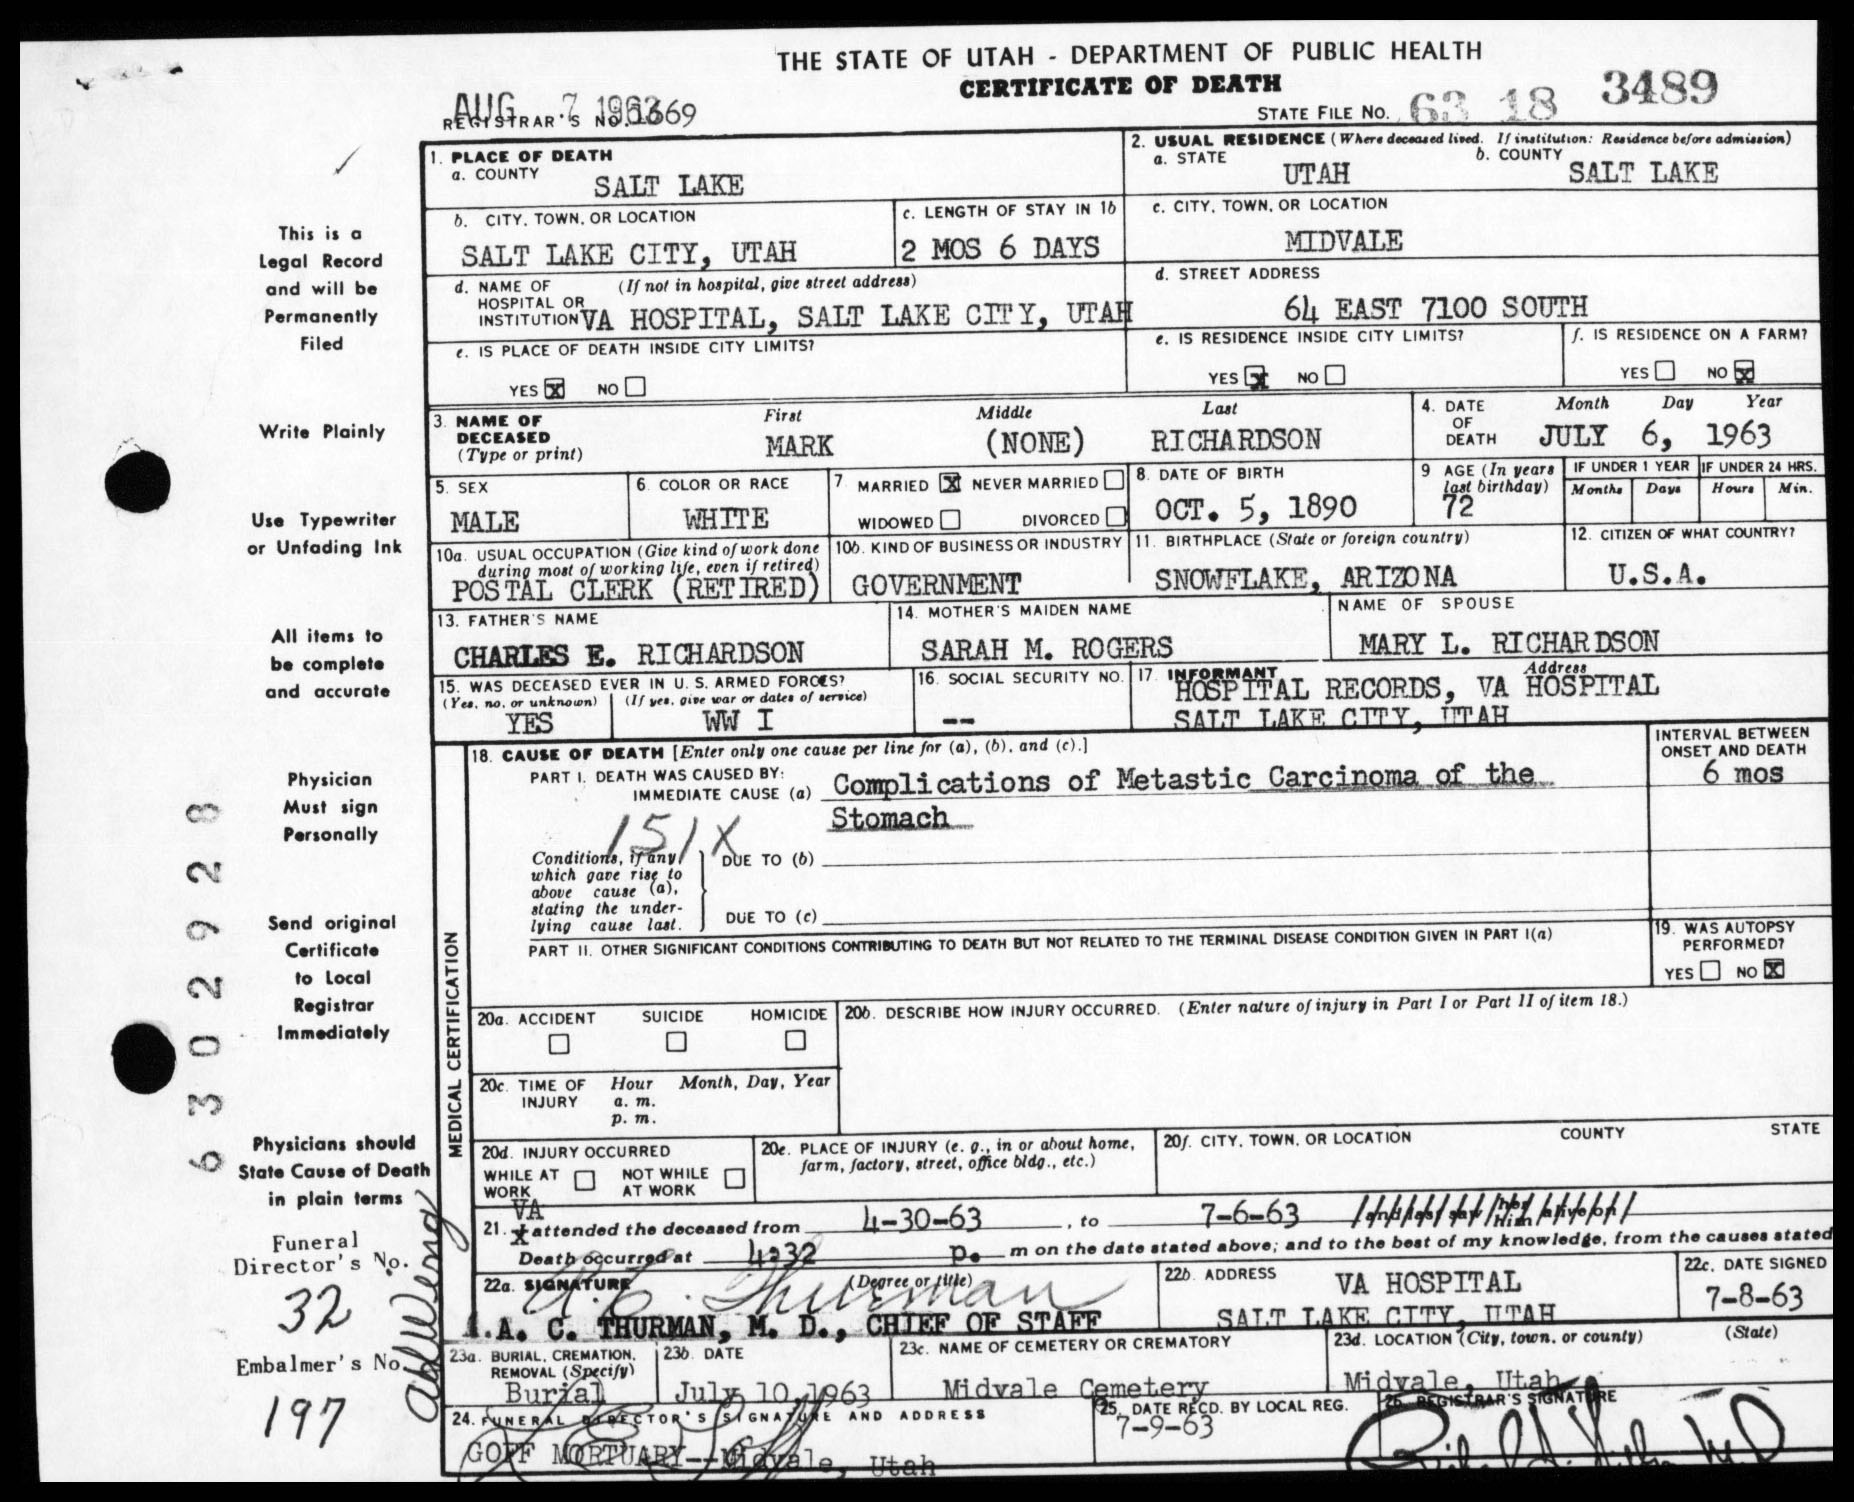 THE STATE OF UTAH - DEPARTMENT OF PUBLIC HEALTH
CERTIFICATE OF DEATH
AUG 7 1963
REGISTRAR'S NO. 1669
STATE FILE NO. 63 18 3489
This is a
Legal Record
and will be
Permanently
Filed
Write Plainly
Use Typewriter
or Unfading Ink
All items to
be complete
and accurate
Physician
Must sign
Personally
Send original
Certificate
to Local
Registrar
Immediately
Physicians should
State Cause of Death
in plain terms
Funeral
Director's No.
32
Embalmer's No.
197
6302928
1. PLACE OF DEATH
a. COUNTY
SALT LAKE
2. USUAL RESIDENCE (Where deceased lived. If institution: Residence before admission)
a. STATE
UTAH
b. COUNTY
SALT LAKE
b. CITY, TOWN, OR LOCATION
SALT LAKE CITY, UTAH
c. LENGTH OF STAY IN 1b
2 MOS 6 DAYS
c. CITY, TOWN, OR LOCATION
MIDVALE
d. NAME OF (If not in hospital, give street address)
HOSPITAL OR
INSTITUTION VA HOSPITAL, SALT LAKE CITY, UTAH
d. STREET ADDRESS
64 EAST 7100 SOUTH
e. IS PLACE OF DEATH INSIDE CITY LIMITS?
YES X NO
e. IS RESIDENCE INSIDE CITY LIMITS?
YES X NO
f. IS RESIDENCE ON A FARM?
YES NO X
3. NAME OF
DECEASED
(Type or print)
First Middle Last
MARK (NONE) RICHARDSON
4. DATE
OF
DEATH
Month Day Year
JULY 6, 1963
5. SEX
MALE
6. COLOR OR RACE
WHITE
7. MARRIED X NEVER MARRIED
WIDOWED DIVORCED
8. DATE OF BIRTH
OCT. 5, 1890
9 AGE (In years
last birthday)
72
IF UNDER 1 YEAR
Months Days
IF UNDER 24 HRS.
Hours Min.
10a. USUAL OCCUPATION (Give kind of work done
during most of working life, even if retired)
POSTAL CLERK (RETIRED)
10b. KIND OF BUSINESS OR INDUSTRY
GOVERNMENT
11. BIRTHPLACE (State or foreign country)
SNOWFLAKE, ARIZONA
12. CITIZEN OF WHAT COUNTRY?
U.S.A.
13. FATHER'S NAME
CHARLES E. RICHARDSON
14. MOTHER'S MAIDEN NAME
SARAH M. ROGERS
NAME OF SPOUSE
MARY L. RICHARDSON
15. WAS DECEASED EVER IN U. S. ARMED FORCES?
(Yes, no, or unknown) (If yes, give war or dates of service)
YES WW I
16. SOCIAL SECURITY NO.
--
17. INFORMANT Address
HOSPITAL RECORDS, VA HOSPITAL
SALT LAKE CITY, UTAH
MEDICAL CERTIFICATION
18. CAUSE OF DEATH [Enter only one cause per line for (a), (b), and (c).]
INTERVAL BETWEEN
ONSET AND DEATH
6 mos
PART I. DEATH WAS CAUSED BY:
IMMEDIATE CAUSE (a) Complications of Metastic Carcinoma of the
Stomach
151X
Conditions, if any,
which gave rise to
above cause (a),
stating the under-
lying cause last.
DUE TO (b)
DUE TO (c)
PART II. OTHER SIGNIFICANT CONDITIONS CONTRIBUTING TO DEATH BUT NOT RELATED TO THE TERMINAL DISEASE CONDITION GIVEN IN PART I(a)
19. WAS AUTOPSY
PERFORMED?
YES NO X
20a. ACCIDENT SUICIDE HOMICIDE
20b. DESCRIBE HOW INJURY OCCURRED. (Enter nature of injury in Part I or Part II of item 18.)
20c. TIME OF
INJURY
Hour Month, Day, Year
a. m.
p. m.
20d. INJURY OCCURRED
WHILE AT
WORK
NOT WHILE
AT WORK
20e. PLACE OF INJURY (e. g., in or about home,
farm, factory, street, office bldg., etc.)
20f. CITY, TOWN, OR LOCATION COUNTY STATE
VA
21. I attended the deceased from 4-30-63, to 7-6-63 and last saw her him alive on
Death occurred at 4:32 p. m on the date stated above; and to the best of my knowledge, from the causes stated
22a. SIGNATURE (Degree or title)
A. C. Thurman
A. C. THURMAN, M. D., CHIEF OF STAFF
22b. ADDRESS VA HOSPITAL
SALT LAKE CITY, UTAH
22c. DATE SIGNED
7-8-63
23a. BURIAL, CREMATION,
REMOVAL (Specify)
Burial
23b. DATE
July 10, 1963
23c. NAME OF CEMETERY OR CREMATORY
Midvale Cemetery
23d. LOCATION (City, town, or county) (State)
Midvale, Utah
24. FUNERAL DIRECTOR'S SIGNATURE AND ADDRESS
GOFF MORTUARY--Midvale, Utah
25. DATE RECD. BY LOCAL REG.
7-9-63
26. REGISTRAR'S SIGNATURE